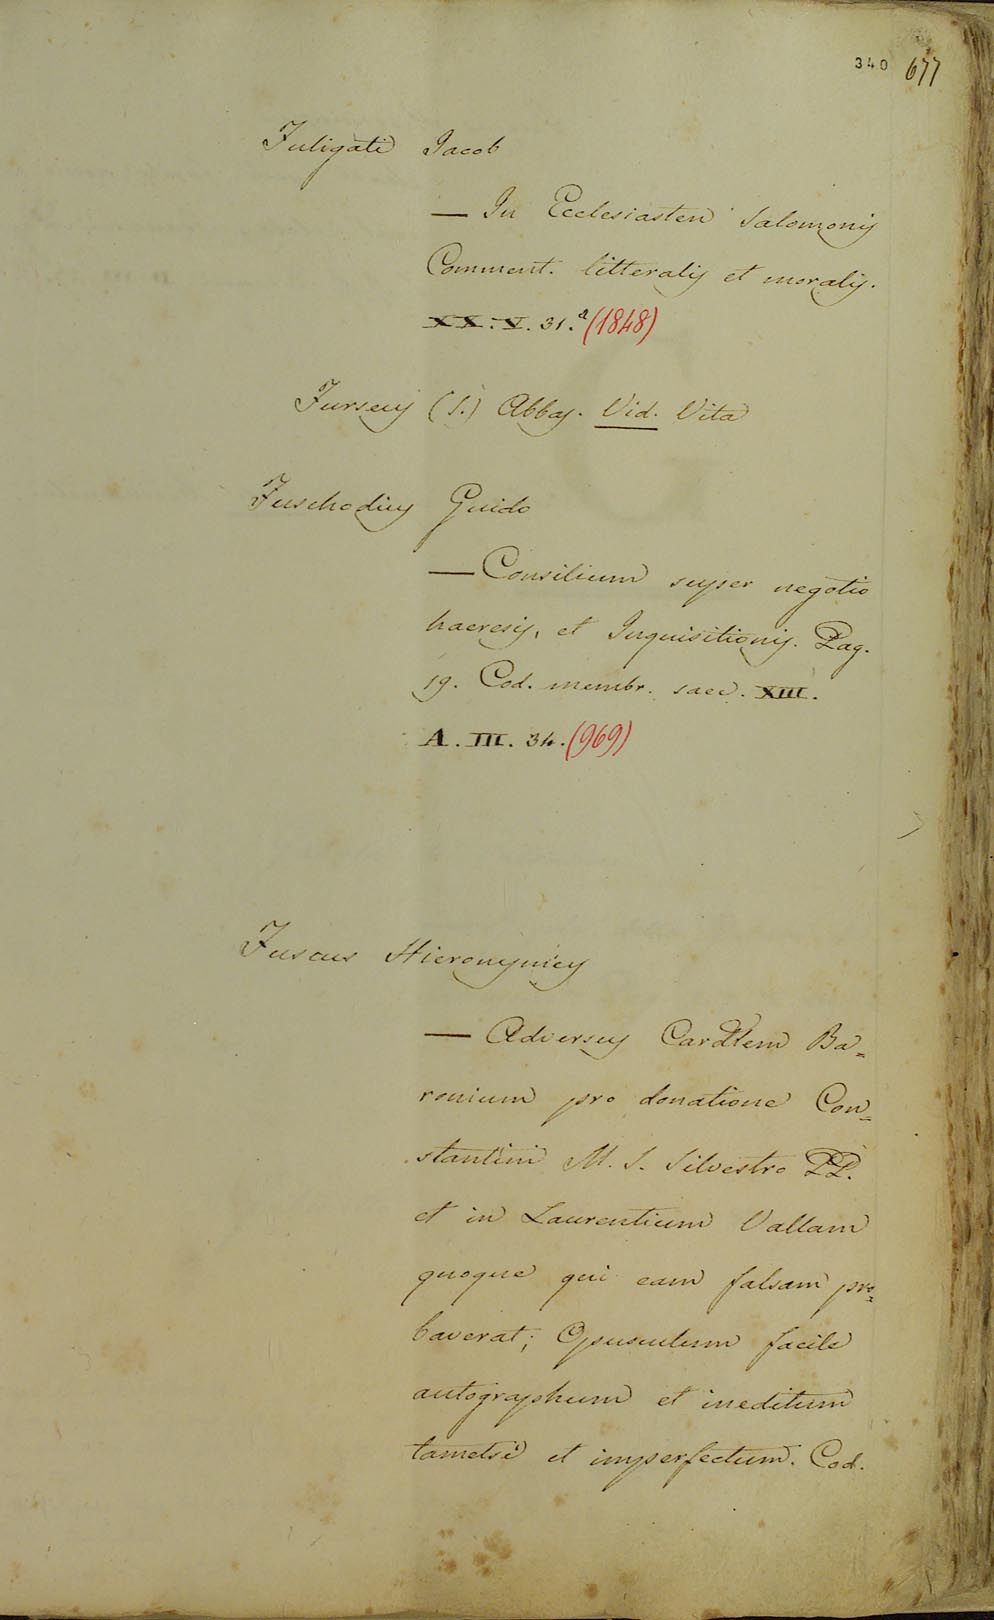 340 677
Fuligati Jacob
— In Ecclesiasten Salomonis
Comment. litteralis et moralis.
XX. V. 31.a (1848)
Furseus (S.) Abbas. Vid. Vita
Fuschodius Guido
— Consilium super negotio
haeresis, et Inquisitionis. Pag.
19. Cod. membr. saec. XIII.
A. III. 34. (969)
Fuscus Hieronymus
— Adversus Cardlem Ba=
ronium pro donatione Con=
stantini M. S. Silvestro PP.
et in Laurentium Vallam
quoque qui eam falsam pro=
baverat; Opusculum facile
autographum et ineditum
tametsi et imperfectum. Cod.